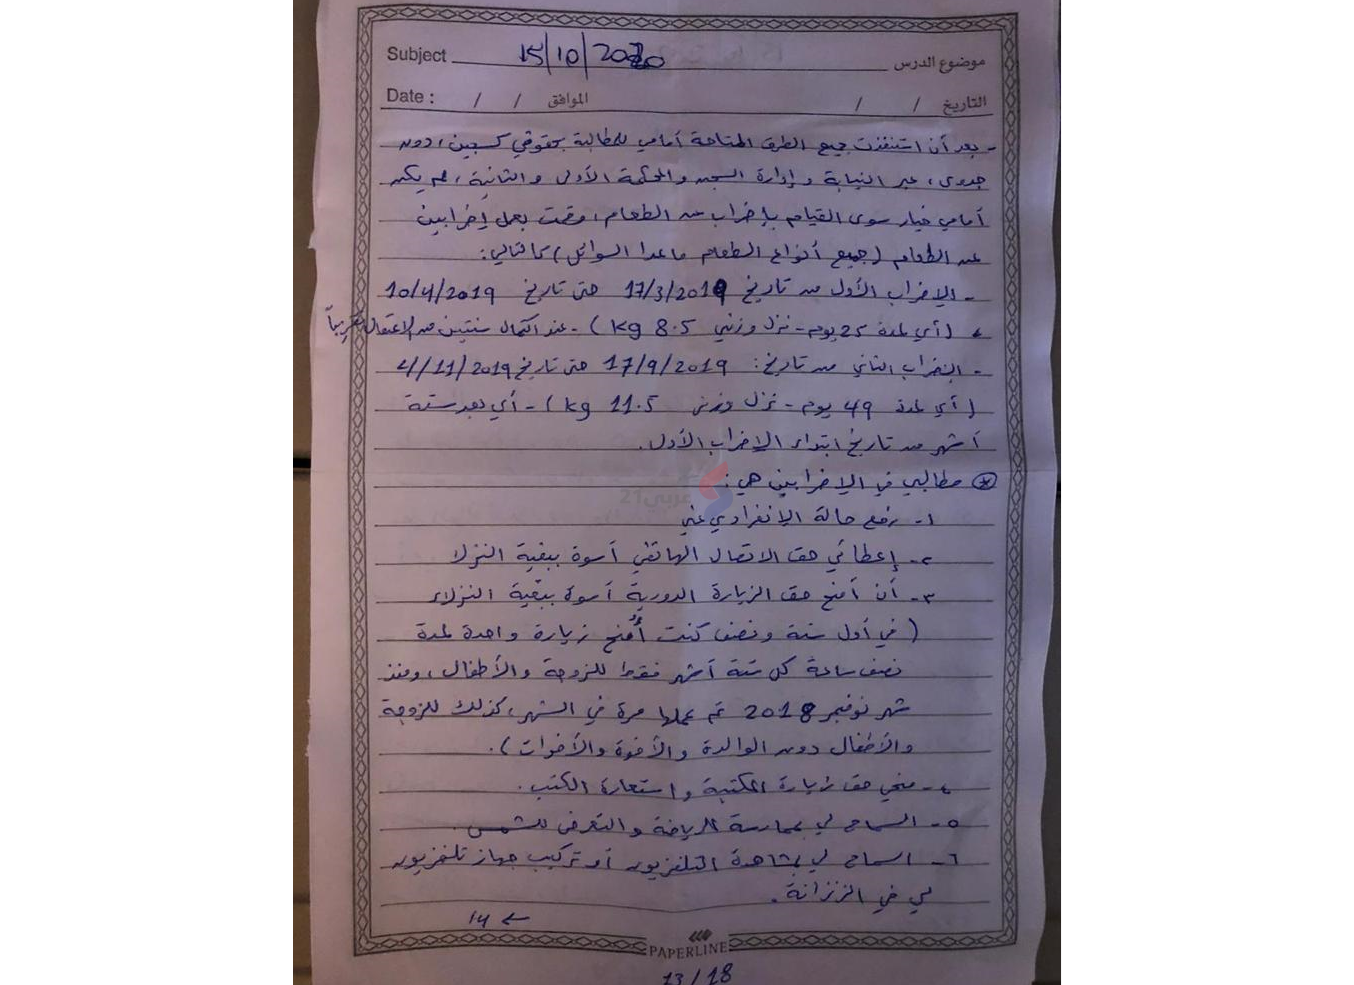 Subject 15/10/2020 موضوع الدرس
Date : / / الموافق / / التاريخ
- بعد أن استنفذت جميع الطرق المتاحة أمامي للمطالبة بحقوقي كسجين، دون
جدوى، عبر النيابة وإدارة السجن والمحكمة الأولى والثانية، لم يكن
أمامي خيار سوى القيام بإضراب عن الطعام، وقمت بعمل إضرابين
عن الطعام (جميع أنواع الطعام ماعدا السوائل) كالتالي:
- الإضراب الأول من تاريخ 17/3/2019 حتى تاريخ 10/4/2019
(أي لمدة 25 يوم - نزل وزني 8.5 kg) - عند اكمال سنتين من الاعتقال تقريباً
- الإضراب الثاني من تاريخ: 17/9/2019 حتى تاريخ 4/11/2019
(أي لمدة 49 يوم - نزل وزني 11.5 kg) - أي بعد ستة
أشهر من تاريخ ابتداء الإضراب الأول.
* مطالبي في الإضرابين هي:
عربي21
١- رفع حالة الإنفرادي عني
٢- إعطائي حق الاتصال الهاتفي أسوة ببقية النزلا
٣- أن أمنح حق الزيارة الدورية أسوة ببقية النزلاء
(في أول سنة ونصف كنت أُمنح زيارة واحدة لمدة
نصف ساعة كل ستة أشهر فقط للزوجة والأطفال، ومنذ
شهر نوفمبر 2018 تم عملها مرة في الشهر، كذلك للزوجة
والأطفال دون الوالدة والأخوة والأخوات).
٤- منحي حق زيارة المكتبة واستعارة الكتب.
٥- السماح لي بممارسة الرياضة والتعرض للشمس.
٦- السماح لي بمشاهدة التلفزيون أو تركيب جهاز تلفزيون
لي في الزنزانة.
14 ←
PAPERLINE
13/18